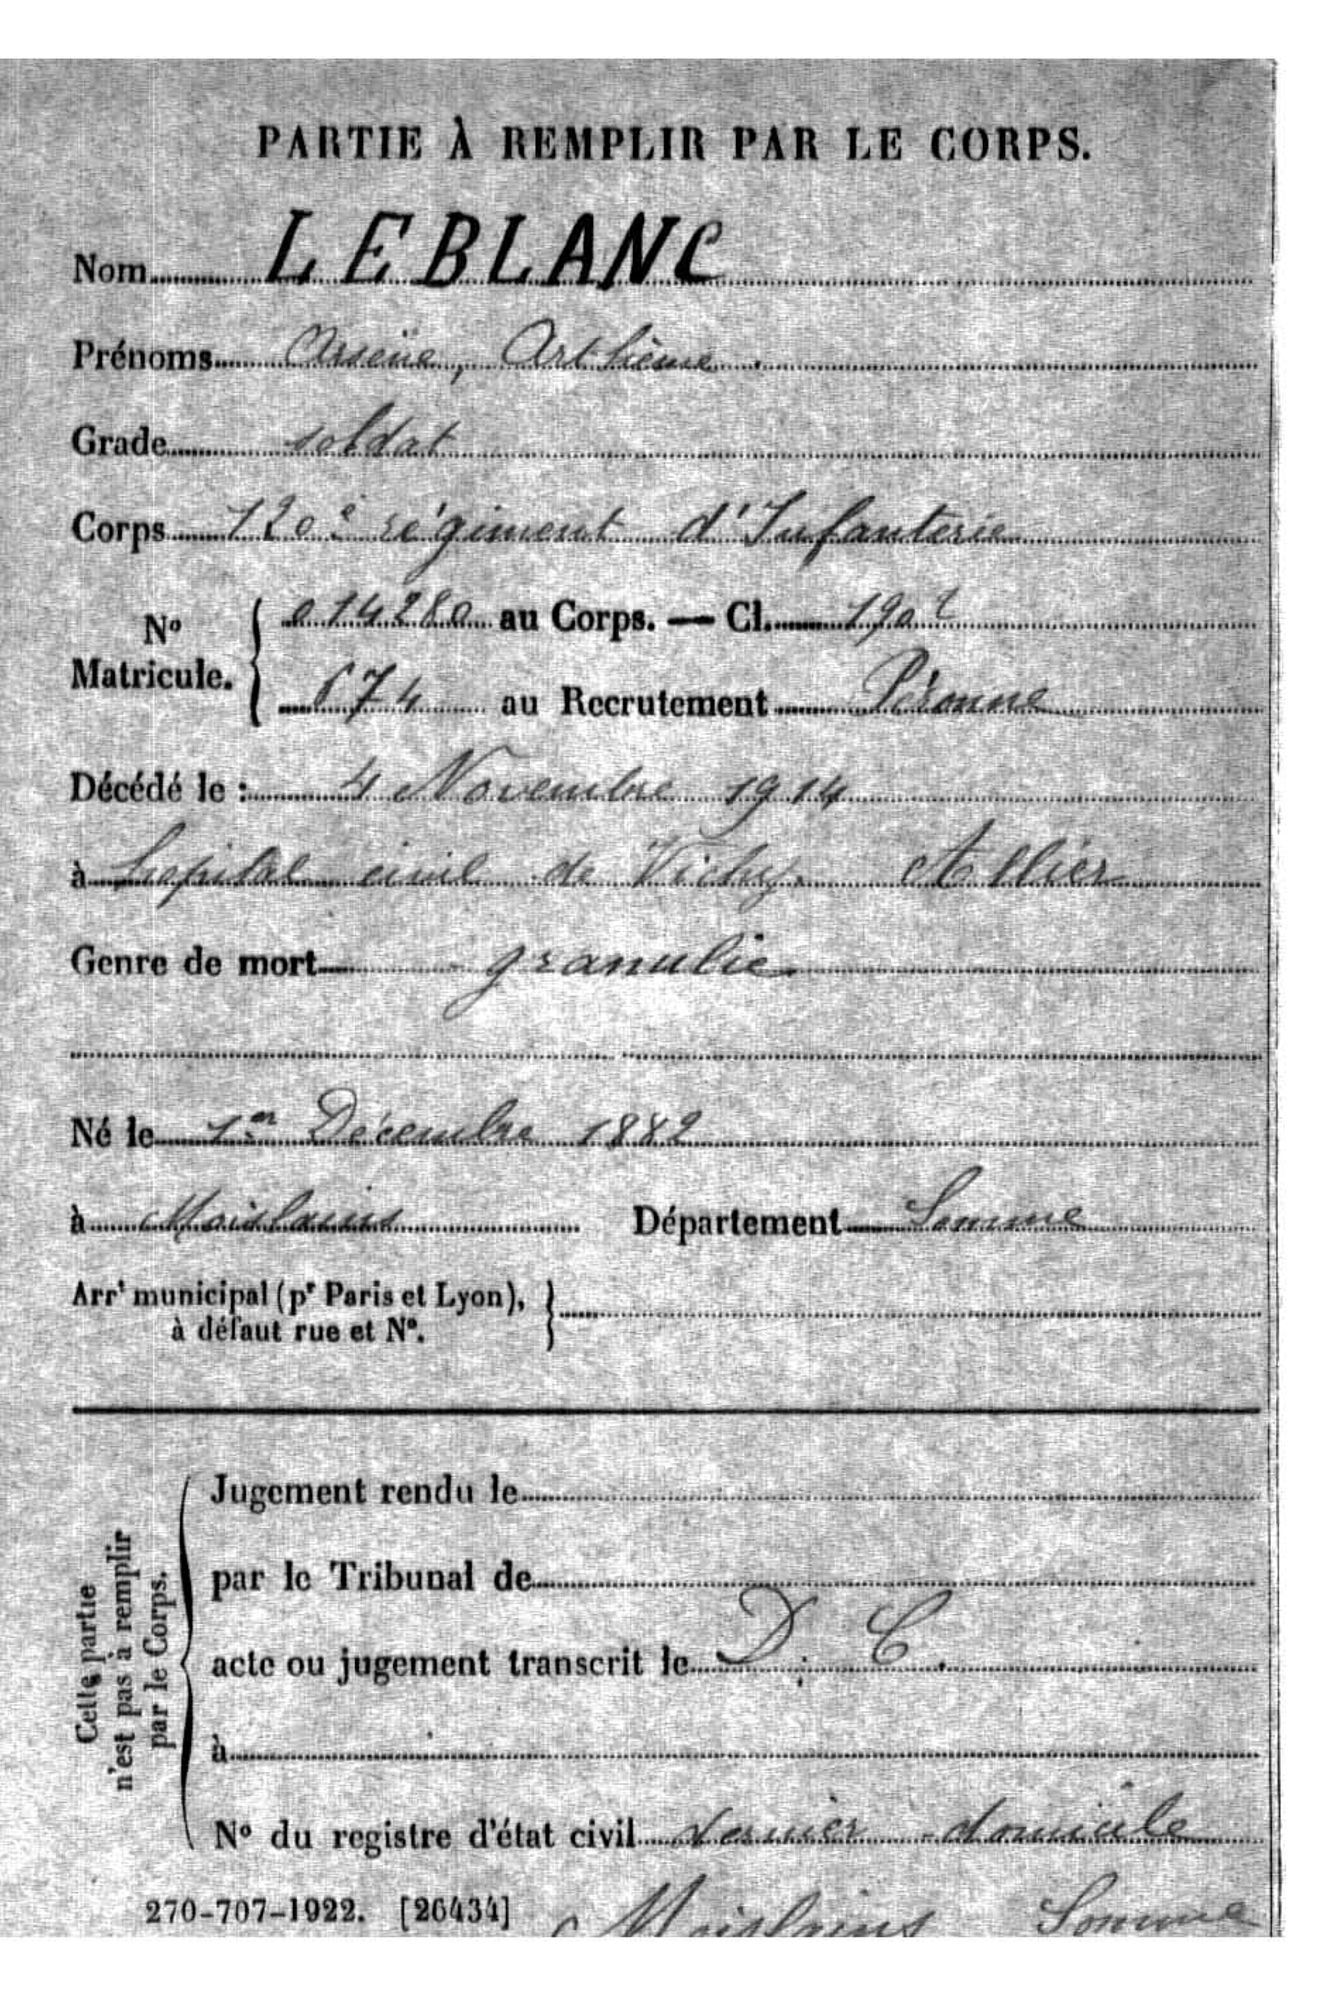 PARTIE À REMPLIR PAR LE CORPS.
Nom LEBLANC
Prénoms Arsène, Arthème.
Grade soldat
Corps 120e régiment d'Infanterie
No Matricule. 014280 au Corps. — Cl. 1902
674 au Recrutement Péronne
Décédé le : 4 Novembre 1914
à hôpital civil de Vichy. Allier
Genre de mort granulie
Né le 1er Décembre 1882
à Moislains Département Somme
Arrt municipal (pr Paris et Lyon),
à défaut rue et No.
Cette partie
n'est pas à remplir
par le Corps.
Jugement rendu le
par le Tribunal de
acte ou jugement transcrit le D. C.
à
No du registre d'état civil dernier domicile
270-707-1922. [26434] Moislains Somme